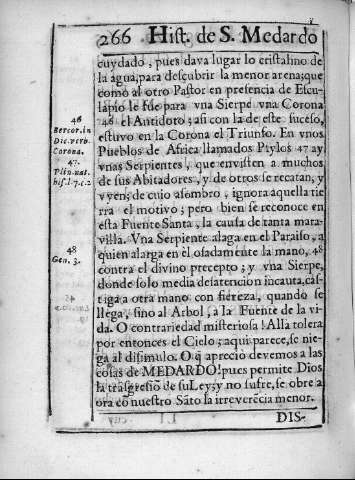 266 Hist. de S. Medardo
cuydado, pues dava lugar lo cristalino de
la agua, para descubrir la menor arena; que
como al otro Pastor en presencia de Escu-
lapio le fue para vna Sierpe vna Corona
46 el Antidoto; asi con la de este suceso,
estuvo en la Corona el Triunfo. En vnos
Pueblos de Africa llamados Ptylos 47 ay
vnas Serpientes, que envisten a muchos
de sus Abitadores, y de otros se recatan, y
vyen; de cuio asombro, ignora aquella tie
rra el motivo; pero bien se reconoce en
esta Fuente Santa, la causa de tanta mara-
villa. Vna Serpiente alaga en el Paraiso, a
quien alarga en èl osadamente la mano, 48
contra el divino precepto; y vna Sierpe,
donde solo media desatencion incauta, cas-
tiga a otra mano con fiereza, quando se
llega, sino al Arbol, a la Fuente de la vi-
da. O contrariedad misteriosa! Alla tolera
por entonces el Cielo; aqui parece, se nie-
ga al disimulo. O q̃ aprecio devemos a las
cosas de MEDARDO! pues permite Dios
la trasgresiõ de su Ley; y no sufre, se obre a
ora cõ nuestro Sãto la irreverẽcia menor.
DIS-
46
Bercor. in
Dic. verb.
Corona.
47.
Plin. nat.
hist. l. 7. c. 2
48
Gen. 3.